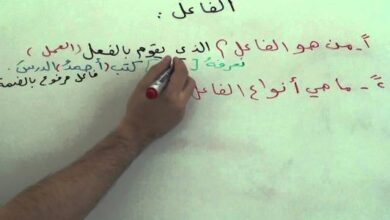 الفاعل :
١- من هو الفاعل ؟ الذي يقوم بالفعل (العمل)
نعرفهُ [ كتب (أحمدُ) الدرسَ
فاعل مرفوع بالضمة
٢- ما هي أنواع الفاعل